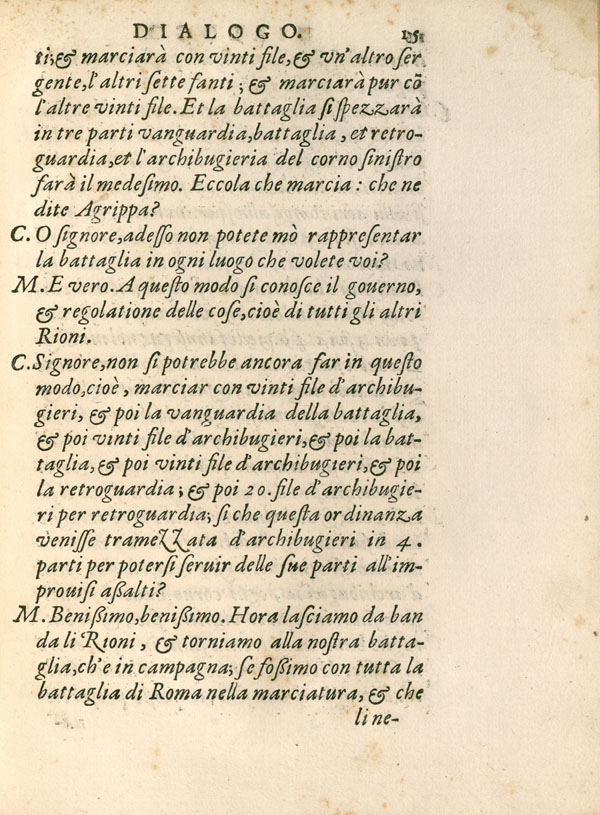 DIALOGO. 15.
ti; & marciarà con vinti file, & vn'altro ser
gente, l'altri sette fanti; & marciarà pur cõ
l'altre vinti file. Et la battaglia si spezzarà
in tre parti vanguardia, battaglia, et retro-
guardia, et l'archibugieria del corno sinistro
farà il medesimo. Eccola che marcia: che ne
dite Agrippa?
C. O signore, adesso non potete mò rappresentar
la battaglia in ogni luogo che volete voi?
M. E vero. A questo modo si conosce il governo,
& regolatione delle cose, cioè di tutti gli altri
Rioni.
C. Signore, non si potrebbe ancora far in questo
modo, cioè, marciar con vinti file d'archibu-
gieri, & poi la vanguardia della battaglia,
& poi vinti file d'archibugieri, & poi la bat-
taglia, & poi vinti file d'archibugieri, & poi
la retroguardia; & poi 20. file d'archibugie-
ri per retroguardia; si che questa ordinanza
venisse tramezzata d'archibugieri in 4.
parti per potersi seruir delle sue parti all'im-
prouisi aßalti?
M. Benißimo, benißimo. Hora lasciamo da ban
da li Rioni, & torniamo alla nostra batta-
glia, ch'e in campagna; se foßimo con tutta la
battaglia di Roma nella marciatura, & che
li ne-